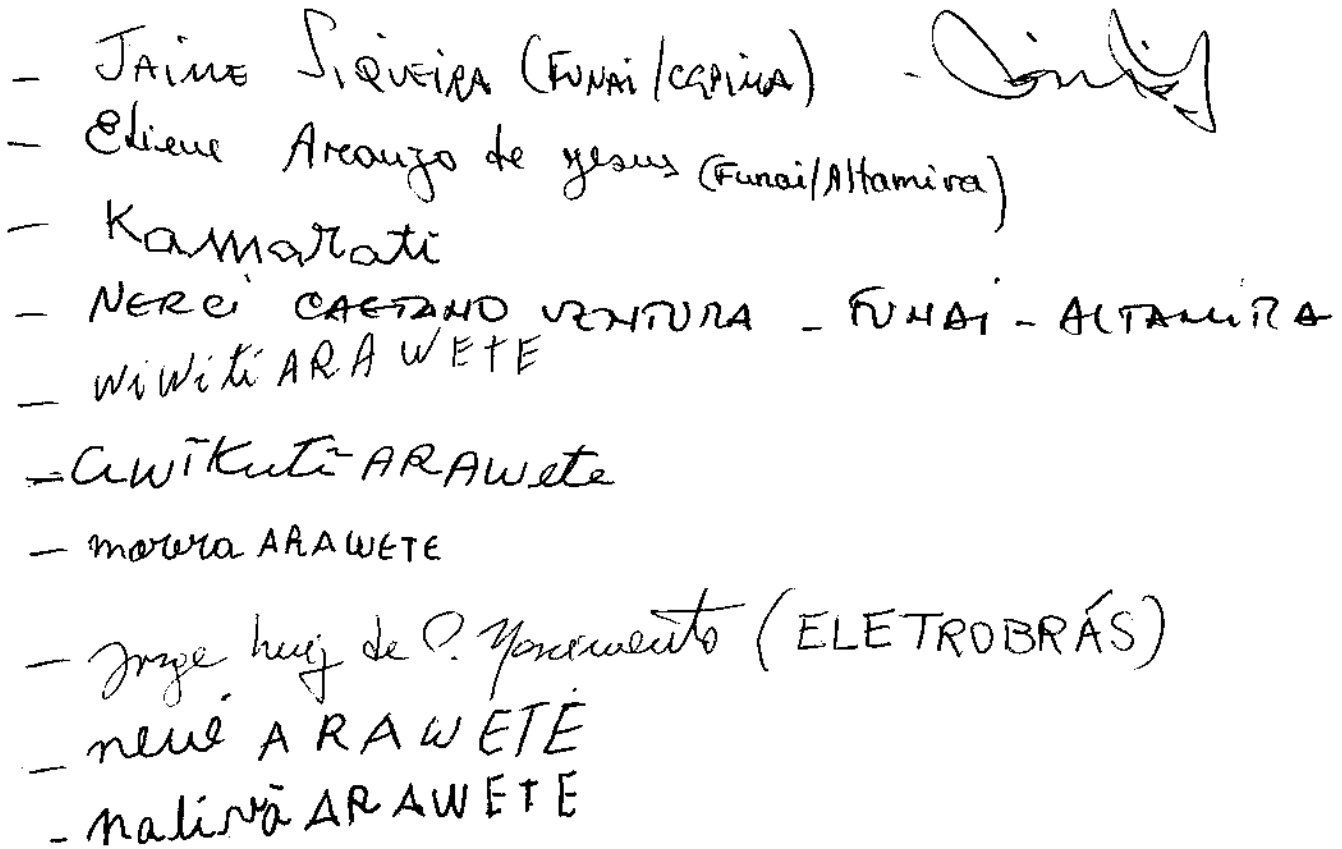 - JAIME SIQUEIRA (FUNAI/CGPIMA) -
- Eliene Araujo de Jesus (Funai/Altamira)
- Kamarati
- NERCI CAETANO VENTURA - FUNAI - ALTAMIRA
- WiWiti ARAWETE
- Awĩkutĩ ARAWete
- morera ARAWETE
- Jorge Luiz de P. Nascimento (ELETROBRÁS)
- neué ARAWETÉ
- nalivã ARAWETE